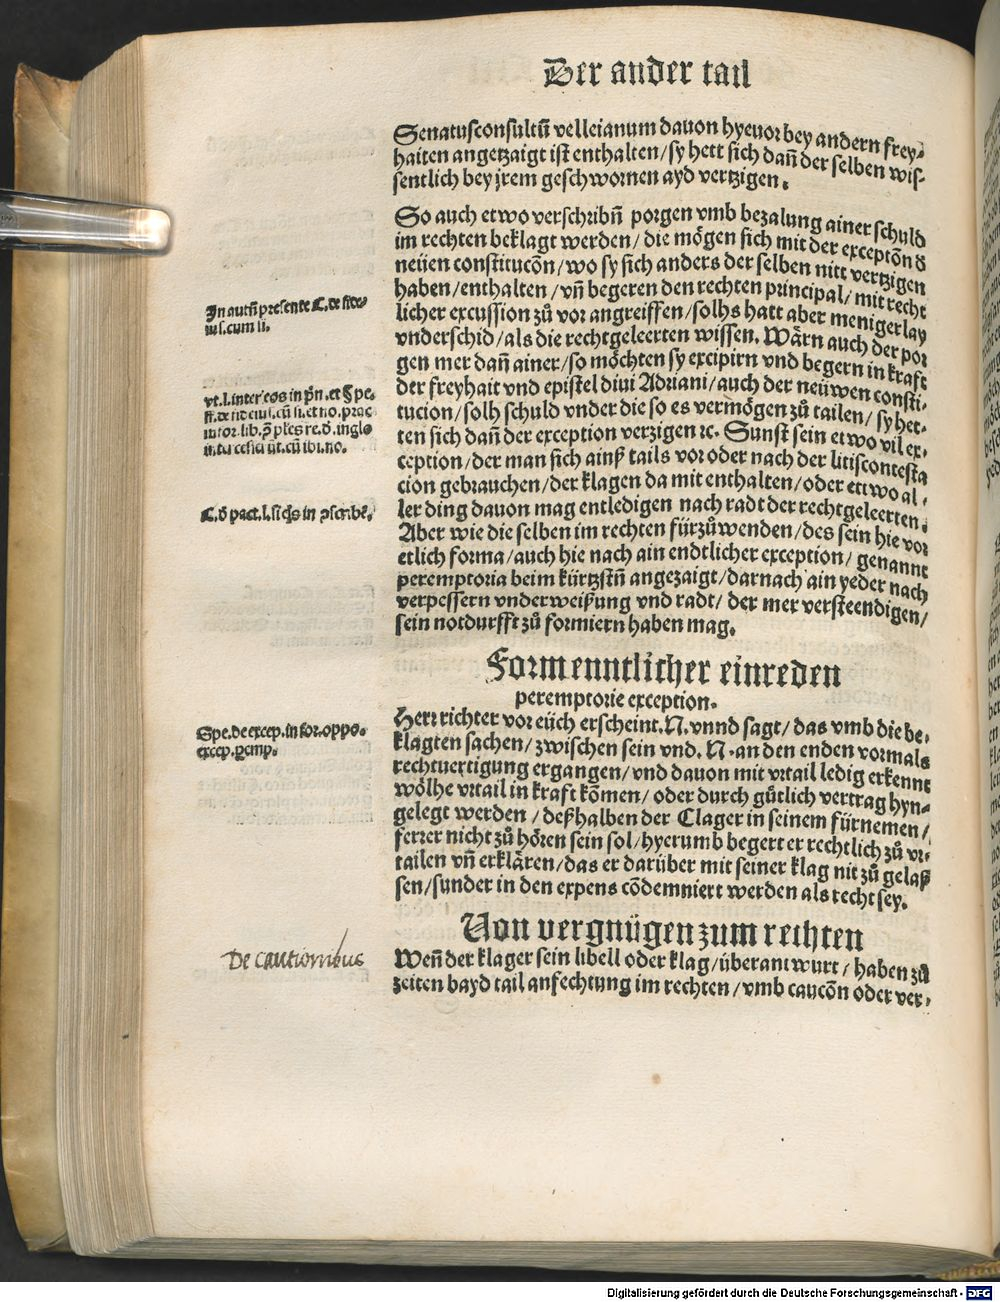 Der ander tail
Senatusconsultū velleianum dauon hyeuor bey andern frey-
haiten angetzaigt ist enthalten/sy hett sich dañ der selben wis-
sentlich bey jrem geschwornen ayd vertzigen.
So auch etwo verschribñ porgen vmb bezalung ainer schuld
im rechten beklagt werden/die mögen sich mit der exceptōn d
neüen constitucōn/wo sy sich anders der selben nitt vertzigen
haben/enthalten/vñ begeren den rechten principal/mit recht
licher excussion zů vor angreiffen/solhs hatt aber meniger lay
vnderschid/als die rechtgeleerten wissen. Wärn auch der por
gen mer dañ ainer/so möchten sy excipirn vnd begern in kraft
der freyhait vnd epistel diui Adriani/auch der neüwen consti-
tucion/solh schuld vnder die so es vermögen zů tailen/sy het-
ten sich dañ der exception verzigen ꝛc. Sunst sein etwo vil ex-
ception/der man sich ainß tails vor oder nach der litiscontesta
cion gebrauchen/der klagen da mit enthalten/oder ettwo al-
ler ding dauon mag entledigen nach radt der rechtgeleerten.
Aber wie die selben im rechten fürzůwenden/des sein hie vor
etlich forma/auch hie nach ain endtlicher exception/genannt
peremptoria beim kürtzstñ angezaigt/darnach ain yeder nach
verpessern vnderweißung vnd radt/der mer versteendigen/
sein notdurfft zů formiern haben mag.
In autñ presente C. de fide-
ius. cum li.
vt. l. inter eos in pñ. et § pe.
ff. de fideius. cū li. et no. prac
C. d pact. l. si qs in ꝯscribē.
Form enntlicher einreden
peremptorie exception.
Herr richter vor eüch erscheint. N. vnnd sagt/das vmb die be-
klagten sachen/zwischen sein vnd. N. an den enden vormals
rechtuertigung ergangen/vnd dauon mit vrtail ledig erkennt
wölhe vrtail in kraft kōmen/oder durch gůtlich vertrag hyn-
gelegt werden/deßhalben der Clager in seinem fürnemen/
ferrer nicht zů hören sein sol/hyerumb begert er rechtlich zů vr-
tailen vñ erklären/das er darüber mit seiner klag nit zů gelaß
sen/sunder in den expens cōdemniert werden als recht sey.
Spe. de excep. in for. oppo.
excep. ꝑemp.
Von vergnügen zum rechten
Weñ der klager sein libell oder klag/überantwurt/haben zů
zeiten bayd tail anfechtung im rechten/vmb caucōn oder ver-
De cautionibus
Digitalisierung gefördert durch die Deutsche Forschungsgemeinschaft - DFG